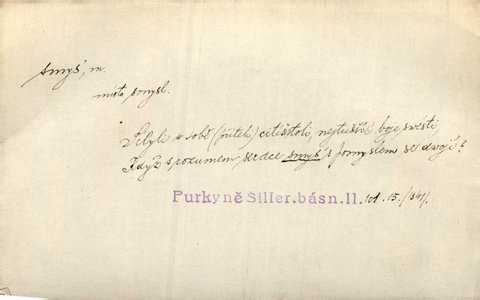 smyš, m.
místo smysl.
v sobě (příteli) citišstolo, nejtušívé boje svésti,
Když s rozumem srdce smyš s pomyslem se dvojí?
Purkyně Siller.básn.II. 101. 15. /841/.